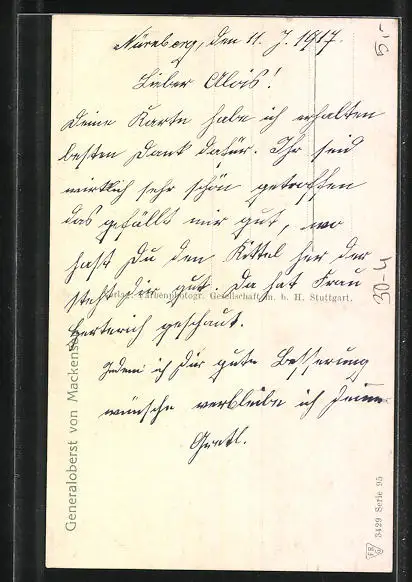 Nürnberg, den 11. J. 1917.
5.-
Lieber Alois!
Deine Karte habe ich erhalten
besten Dank dafür. Ihr seid
wirklich sehr schön getroffen
das gefällt mir gut, wo
hast Du den Kittel her der
steht Dir gut. Da hat Frau
Herterich geschaut.
Indem ich Dir gute Besserung
wünsche verbleibe ich Deine
Gretl.
Verlag: Farbenphotogr. Gesellschaft m. b. H. Stuttgart.
Generaloberst von Mackensen
30-4
3429 Serie 95